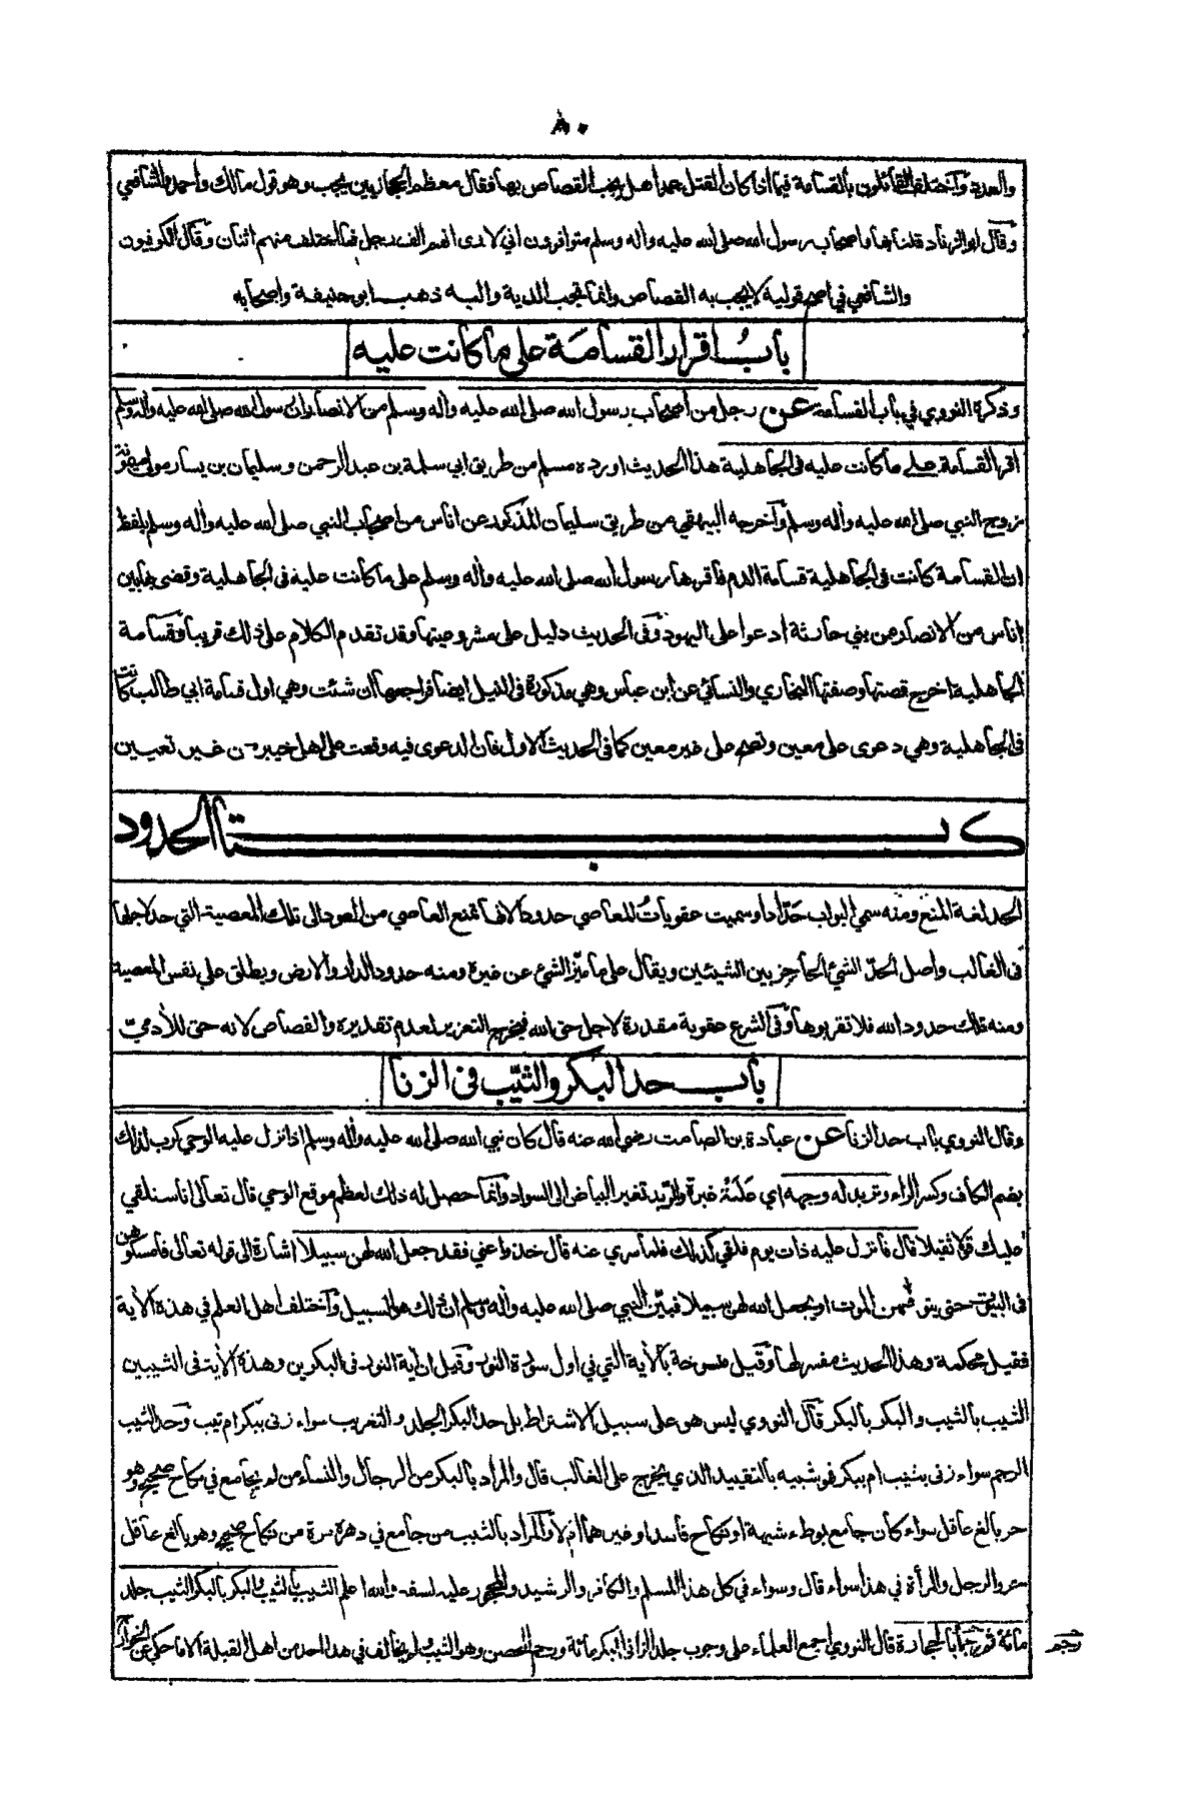 ٨٠
والعدد واختلف القائلون بالقسامة فيما اذا كان القتل عمدا هل يجب القصاص بها فقال معظم الحجازيين يجب وهو قول مالك واحمد والشافعي
وقال ابو الزناد قلنا بها واصحاب رسول الله صلى الله عليه واله وسلم متوافرون اني لارى انهم الف رجل فما اختلف منهم اثنان وقال الكوفيون
والشافعي في اصح قوليه لا يجب به القصاص وانما تجب الدية واليه ذهب ابو حنيفة واصحابه
باب اقرار القسامة على ما كانت عليه
وذكره النووي في باب القسامة عن رجل من اصحاب رسول الله صلى الله عليه وآله وسلم من الانصار ان رسول الله صلى الله عليه وآله وسلم
اقر القسامة على ما كانت عليه في الجاهلية هذا الحديث اورده مسلم من طريق ابي سلمة بن عبد الرحمن وسليمان بن يسار مولى ميمونة
زوج النبي صلى الله عليه وآله وسلم وآخرجه البيهقي من طريق سليمان المذكور عن اناس من اصحاب النبي صلى الله عليه وآله وسلم بلفظ
ان القسامة كانت في الجاهلية قسامة الدم فاقرها رسول الله صلى الله عليه وآله وسلم على ما كانت عليه في الجاهلية وقضى بها بين
اناس من الانصار من بني حارثة ادعوا على اليهود وفي الحديث دليل على مشروعيتها وقد تقدم الكلام على ذلك قريبا وقسامة
الجاهلية اخرج قصتها وصفتها البخاري والنسائي عن ابن عباس وهي مذكورة في النيل ايضا فراجعها ان شئت وهي اول قسامة ابي طالب كانت
في الجاهلية وهي دعوى على معين وتصح على غير معين كما في الحديث الاول فان الدعوى فيه وقعت على اهل خيبر من غير تعيين
كتاب الحدود
الحد لغة المنع ومنه سمي البواب حَدّادا وسميت عقوبات المعاصي حدودا لانها تمنع العاصي من العود الى تلك المعصية التي حد لاجلها
في الغالب واصل الحدّ الشئ الحاجز بين الشيئين ويقال على ما ميّز الشئ عن غيره ومنه حدود الدار والارض ويطلق على نفس المعصية
ومنه تلك حدود الله فلا تقربوها وفي الشرع عقوبة مقدرة لاجل حق الله فيخرج التعزير لعدم تقديره والقصاص لانه حق للآدميّ
باب حد البكر والثيّب في الزنا
وقال النووي باب حد الزنا عن عبادة بن الصامت رضي الله عنه قال كان نبي الله صلى الله عليه وآله وسلم اذا نزل عليه الوحي كرب لذلك
بضم الكاف وكسر الراء وتربد له وجهه اي عَلَتْهُ غبرة والربد تغير البياض الى السواد وانما حصل له ذلك لعظم موقع الوحي قال تعالى انا سنلقي
عليك قولا ثقيلا قال فانزل عليه ذات يوم فلقي كذلك فلما سري عنه قال خذوا عني فقد جعل الله لهن سبيلا اشارة الى قوله تعالى فامسكوهن
في البيوت حتى يتوفهن الموت او يجعل الله لهن سبيلا فبيّن النبي صلى الله عليه وآله وسلم ان ذلك هو السبيل وآختلف اهل العلم في هذه الآية
فقيل محكمة وهذا الحديث مفسر لها وقيل منسوخة بالآية التي في اول سورة النور وقيل ان آية النور في البكرين وهذه الآية في الثيبين
الثيب بالثيب والبكر بالبكر قال النووي ليس هو على سبيل الاشتراط بل حد البكر الجلد والتغريب سواء زنى ببكر ام ثيب وحد الثيب
الرجم سواء زنى بثيب ام ببكر فهو شبيه بالتقييد الذي يخرج على الغالب قال والمراد بالبكر من الرجال والنساء من لم يجامع في نكاح صحيح وهو
حر بالغ عاقل سواء كان جامع بوطء شبهة او نكاح فاسد او غيرهما ام لا والمراد بالثيب من جامع في دهره مرة من نكاح صحيح وهو بالغ عاقل
حر والرجل والمرأة في هذا سواء قال وسواء في كل هذا المسلم والكافر والرشيد والمحجور عليه لسفه والله اعلم الثيب بالثيب والبكر بالبكر الثيب جلد
مائة ثم رجما بالحجارة قال النووي اجمع العلماء على وجوب جلد الزاني البكر مائة ورجم المحصن وهو الثيب ولم يخالف في هذا احد من اهل القبلة الا ما حكي عن الخوارج
رجم